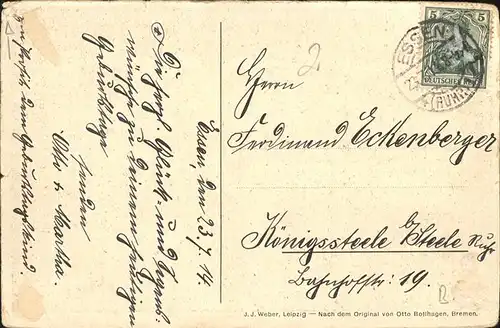 Essen, den 23.7.14
Die herzl. Glück- und Segens-
wünsche zu Deinem heutigen
Geburtstage
senden
Otto & Martha.
zum Geburtstagskind.
2
Herrn
Ferdinand Eckenberger
Königssteele b/ Steele Ruhr
Bahnhofstr. 19.
5 5
DEUTSCHES
ESSEN
(RUHR)
J. J. Weber, Leipzig — Nach dem Original von Otto Bollhagen, Bremen.